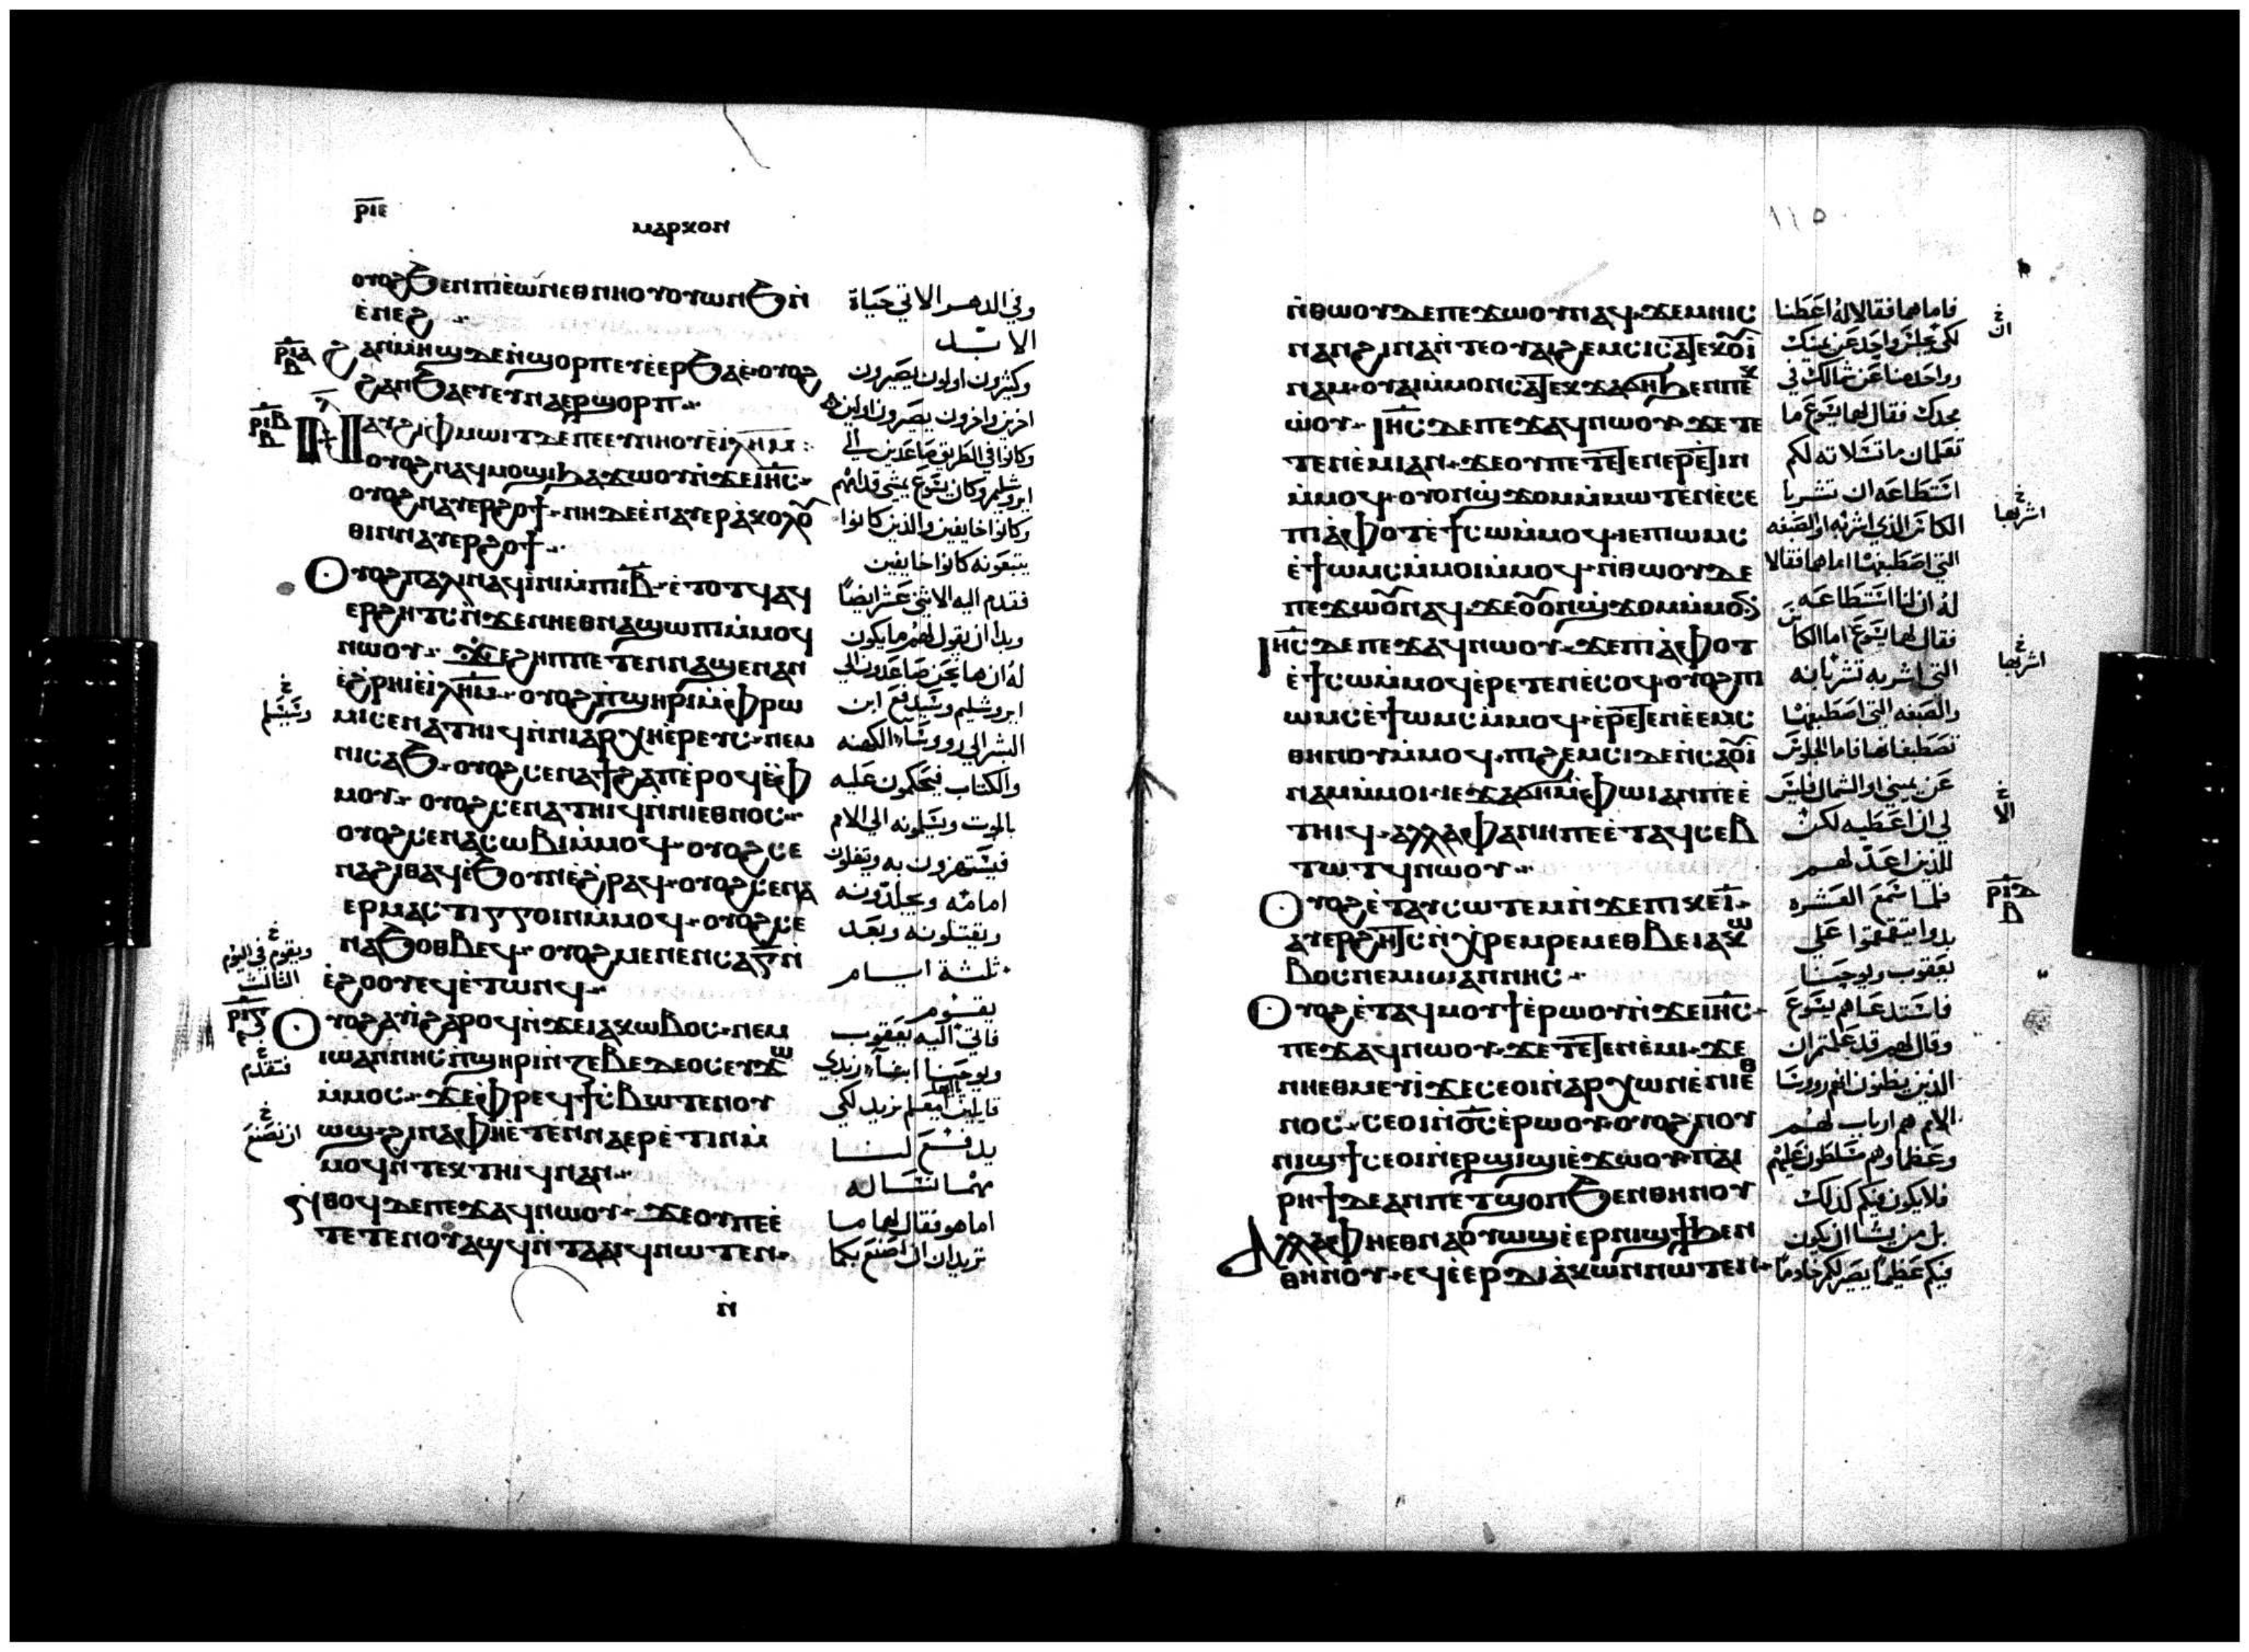 ⲣⲓⲉ
ⲙⲁⲣⲕⲟⲛ
ⲟⲩⲟϩ ϧⲉⲛ ⲡⲓⲉ̀ⲱⲛ ⲉⲑⲛⲏⲟⲩ ⲟⲩⲱⲛϧ ⲛ̀
ⲉ̀ⲛⲉϩ
ϩⲁⲛⲙⲏϣ ⲇⲉ ⲛ̀ϣⲟⲣⲡ ⲉⲩⲉ̀ⲉⲣϧⲁⲉ̀ ⲟⲩⲟϩ
ϩⲁⲛϧⲁⲉⲩ ⲉⲩⲛⲁⲉⲣϣⲟⲣⲡ
ⲛⲁⲩϩⲓ ⲫⲙⲱⲓⲧ ⲇⲉ ⲡⲉ ⲉⲩⲛⲏⲟⲩ ⲉ̀ⲓⲗⲏⲙ
ⲟⲩⲟϩ ⲛⲁϥⲙⲟϣⲓ ϧⲁϫⲱⲟⲩ ⲛ̀ϫⲉ ⲓⲏⲥ
ⲟⲩⲟϩ ⲛⲁⲩⲉⲣϩⲟϯ ⲛⲏ ⲇⲉ ⲉ̀ⲛⲁⲩⲉⲣⲁ̀ⲕⲟⲗⲟ
ⲑⲓⲛ ⲛⲁⲩⲉⲣϩⲟϯ
ⲟⲩⲟϩ ⲡⲁⲗⲓⲛ ⲁϥⲓ̀ⲛⲓ ⲙ̀ⲡⲓⲓⲃ ⲉ̀ⲧⲟⲧϥ ⲁϥ
ⲉⲣϩⲏⲧⲥ ⲛ̀ϫⲉ ⲛⲏⲉⲑⲛⲁϣⲱⲡⲓ ⲙ̀ⲙⲟϥ
ⲛⲱⲟⲩ ϫⲉ ϩⲏⲡⲡⲉ ⲧⲉⲛⲛⲁϣⲉⲛⲁⲛ
ⲉ̀ϩⲣⲏⲓ ⲉ̀ⲓⲗⲏⲙ ⲟⲩⲟϩ ⲡ̀ϣⲏⲣⲓ ⲙ̀ⲫⲣⲱ
ⲙⲓ ⲥⲉⲛⲁⲧⲏⲓϥ ⲛ̀ⲛⲓⲁⲣⲭⲏⲉ̀ⲣⲉⲩⲥ ⲛⲉⲙ
ⲛⲓⲥⲁϧ ⲟⲩⲟϩ ⲥⲉⲛⲁϯϩⲁⲡ ⲉ̀ⲣⲟϥ ⲉ̀ⲫ
ⲙⲟⲩ ⲟⲩⲟϩ ⲥⲉⲛⲁⲧⲏⲓϥ ⲛ̀ⲛⲓⲉⲑⲛⲟⲥ
ⲟⲩⲟϩ ⲥⲉⲛⲁⲥⲱⲃⲓ ⲙ̀ⲙⲟϥ ⲟⲩⲟϩ ⲥⲉ
ⲛⲁϩⲓⲑⲁϥ ⲉ̀ϧⲟⲩⲛ ⲉ̀ϩⲣⲁϥ ⲟⲩⲟϩ ⲥⲉⲛⲁ
ⲉⲣⲙⲁⲥⲧⲓⲅⲅⲟⲓⲛ ⲙ̀ⲙⲟϥ ⲟⲩⲟϩ ⲥⲉ
ⲛⲁϧⲟⲑⲃⲉϥ ⲟⲩⲟϩ ⲙⲉⲛⲉⲛⲥⲁ ⲅ̅ ⲛ
ⲉ̀ϩⲟⲟⲩ ⲉϥⲉ̀ⲧⲱⲛϥ
ⲟⲩⲟϩ ⲁⲩⲓ̀ ϩⲁⲣⲟϥ ⲛ̀ϫⲉ ⲓⲁⲕⲱⲃⲟⲥ ⲛⲉⲙ
ⲓⲱⲁⲛⲛⲏⲥ ⲛ̀ϣⲏⲣⲓ ⲛ̀ⲍⲉⲃⲉⲇⲉⲟⲥ ⲉⲩϫⲱ
ⲙ̀ⲙⲟⲥ ϫⲉ ⲫⲣⲉϥϯⲥⲃⲱ ⲧⲉⲛⲟⲩ
ⲱϣ ϩⲓⲛⲁ ⲫⲏⲉ̀ⲧⲉⲛⲛⲁⲉⲣⲉ̀ⲧⲓⲛ ⲙ̀
ⲙⲟϥ ⲛ̀ⲧⲉⲕⲧⲏⲓϥ ⲛⲁⲛ
ⲛ̀ⲑⲟϥ ⲇⲉ ⲡⲉϫⲁϥ ⲛⲱⲟⲩ ϫⲉ ⲟⲩ ⲡⲉⲉ̀
ⲧⲉⲧⲉⲛⲟⲩⲁϣϥ ⲛ̀ⲧⲁⲁⲓϥ ⲛⲱⲧⲉⲛ
ⲛ̀
وفي الدهر الاتي حياة
الابد
وكثيرون اولون يصيرون
اخرين واخرون يصيرون اولين
وكانوا في الطريق صاعدين الي
ايروشليم وكان يسوع يمشي قدامهم
وكانوا خايفين والذين كانوا
يتبعونه كانوا خايفين
فقدم اليه الاثني عشر ايضًا
وبدا ان يقول لهم ما يكون
له ان ها نحن صاعدون الي
ايروشليم وسيدفع ابن
البشر الي رووسا الكهنه
والكتاب فيحكمون عليه
بالموت ويسلمونه الي الامم
فيستهزون به ويتفلون
امامه ويجلدونه
ويقتلونه وبعد
ثلثة ايام
يقوم
فاتي اليه يعقوب
ويوحنا ابنا زبدي
قايلين يامعلم نريد لكي
يدفع لنا
مهما نساله
اما هو فقال لهما ما
تريدان ان اصنع بكما
ⲣⲓⲁ
ⲃ
ⲣⲓⲃ
ⲃ
وسيسلم
ويقوم في اليوم
الثالث
ⲣⲓⲅ
فتقدم
ان تصنع
١١٥
ⲛ̀ⲑⲱⲟⲩ ⲇⲉ ⲡⲉϫⲱⲟⲩ ⲛⲁϥ ϫⲉ ⲙⲏⲓⲥ
ⲛⲁⲛ ϩⲓⲛⲁ ⲛ̀ⲧⲉ ⲟⲩⲁⲓ ϩⲉⲙⲥⲓ ⲥⲁⲧⲉⲕⲟⲩⲓ̀
ⲛⲁⲙ ⲟⲩⲁⲓ ⲙ̀ⲙⲟⲛ ⲥⲁⲧⲉⲕϫⲁϭⲏ ϧⲉⲛ ⲡⲉⲕ
ⲱ̀ⲟⲩ ⲓⲏⲥ ⲇⲉ ⲡⲉϫⲁϥ ⲛⲱⲟⲩ ϫⲉ ⲧⲉ
ⲧⲉⲛⲉ̀ⲙⲓ ⲁⲛ ϫⲉ ⲟⲩ ⲡⲉⲧⲉⲧⲉⲛⲉⲣⲉⲧⲓⲛ
ⲙ̀ⲙⲟϥ ⲟⲩⲟⲛϣϫⲟⲙ ⲙ̀ⲙⲱⲧⲉⲛ ⲉ̀ⲥⲉ
ⲡⲓⲁ̀ⲫⲟⲧ ⲉ̀ϯⲥⲱ ⲙ̀ⲙⲟϥ ⲓⲉ ⲡⲓⲱⲙⲥ
ⲉ̀ϯⲱⲙⲥ ⲙ̀ⲙⲟⲓ ⲙ̀ⲙⲟϥ ⲛ̀ⲑⲱⲟⲩ ⲇⲉ
ⲡⲉϫⲱⲟⲩ ⲛⲁϥ ϫⲉ ⲟⲩⲟⲛϣϫⲟⲙ ⲙ̀ⲙⲟⲛ
ⲓⲏⲥ ⲇⲉ ⲡⲉϫⲁϥ ⲛⲱⲟⲩ ϫⲉ ⲡⲓⲁ̀ⲫⲟⲧ
ⲉ̀ϯⲥⲱ ⲙ̀ⲙⲟϥ ⲉ̀ⲣⲉⲧⲉⲛⲉ̀ⲥⲟϥ ⲟⲩⲟϩ ⲡⲓ
ⲱⲙⲥ ⲉ̀ϯⲱⲙⲥ ⲙ̀ⲙⲟϥ ⲉ̀ⲣⲉⲧⲉⲛⲉ̀ⲉⲙⲥ
ⲑⲏⲛⲟⲩ ⲙ̀ⲙⲟϥ ⲡⲓϩⲉⲙⲥⲓ ⲇⲉ ⲛ̀ⲥⲁⲟⲩⲓ̀
ⲛⲁⲙ ⲙ̀ⲙⲟⲓ ⲓⲉ ϫⲁϭⲏ ⲙ̀ⲫⲱⲓ ⲁⲛ ⲡⲉ ⲉ̀
ⲧⲏⲓϥ ⲁⲗⲗⲁ ⲫⲁ ⲛⲏ ⲡⲉ ⲉ̀ⲧⲁϥⲥⲉⲃ
ⲧⲱⲧϥ ⲛⲱⲟⲩ
ⲟⲩⲟϩ ⲉ̀ⲧⲁⲩⲥⲱⲧⲉⲙ ⲛ̀ϫⲉ ⲡⲓⲕⲉⲓ̅
ⲁⲩⲉⲣϩⲏⲧⲥ ⲛ̀ⲭⲣⲉⲙⲣⲉⲙ ⲉⲑⲃⲉ ⲓⲁⲕⲱ
ⲃⲟⲥ ⲛⲉⲙ ⲓⲱⲁⲛⲛⲏⲥ
ⲟⲩⲟϩ ⲉ̀ⲧⲁϥⲙⲟⲩϯ ⲉ̀ⲣⲱⲟⲩ ⲛ̀ϫⲉ ⲓⲏⲥ
ⲡⲉϫⲁϥ ⲛⲱⲟⲩ ϫⲉ ⲧⲉⲧⲉⲛⲉ̀ⲙⲓ ϫⲉ
ⲛⲏⲉⲑⲙⲉⲩⲓ̀ ϫⲉ ⲥⲉⲟⲓ ⲛ̀ⲁⲣⲭⲱⲛ ⲉ̀ⲛⲓⲉⲑ
ⲛⲟⲥ ⲥⲉⲟⲓ ⲛ̀ϭⲥ ⲉ̀ⲣⲱⲟⲩ ⲟⲩⲟϩ ⲛⲟⲩ
ⲛⲓϣϯ ⲥⲉⲟⲓ ⲛ̀ⲉⲣϣⲓϣⲓ ⲉ̀ϫⲱⲟⲩ ⲡⲁⲓ
ⲣⲏϯ ⲇⲉ ⲁⲛ ⲡⲉⲧϣⲟⲡ ϧⲉⲛ ⲑⲏⲛⲟⲩ
ⲁⲗⲗⲁ ⲫⲏⲉⲑⲛⲁⲟⲩⲱϣ ⲉ̀ⲉⲣⲛⲓϣϯ ϧⲉⲛ
ⲑⲏⲛⲟⲩ ⲉϥⲉ̀ⲉⲣⲇⲓⲁ̀ⲕⲱⲛ ⲛⲱⲧⲉⲛ
فاما هما فقالا له اعطنا
لكي يجلس واحد عن يمينك
وواحد منا عن شمالك في
مجدك فقال لهما يسوع ما
تعلمان ما تسلانه لكم
استطاعه ان تشربا
الكاس الذي اشربه او الصبغه
التي اصطبغها اما هما فقالا
له ان لنا استطاعه
فقال لهما يسوع اما الكاس
التي اشربه تشربانه
والصبغه التي اصطبغها
تصطبغانها فاما الجلوس
عن يميني او الشمال فليس
لي ان اعطيه لكن
للذين اعد لهم
فلما سمع العشره
بدوا يتقمقموا علي
يعقوب ويوحنا
فاستدعاهم يسوع
وقال لهم قد علمتم ان
الذين يظنون انهم رووسا
الامم هم ارباب لهم
وعظماوهم مسلطون عليهم
فلا يكون فيكم كذلك
بل من يشا ان يكون
فيكم عظيما يصير لكم خادما
ان
اشربها
اشربها
الا
ⲣⲓⲇ
ⲃ